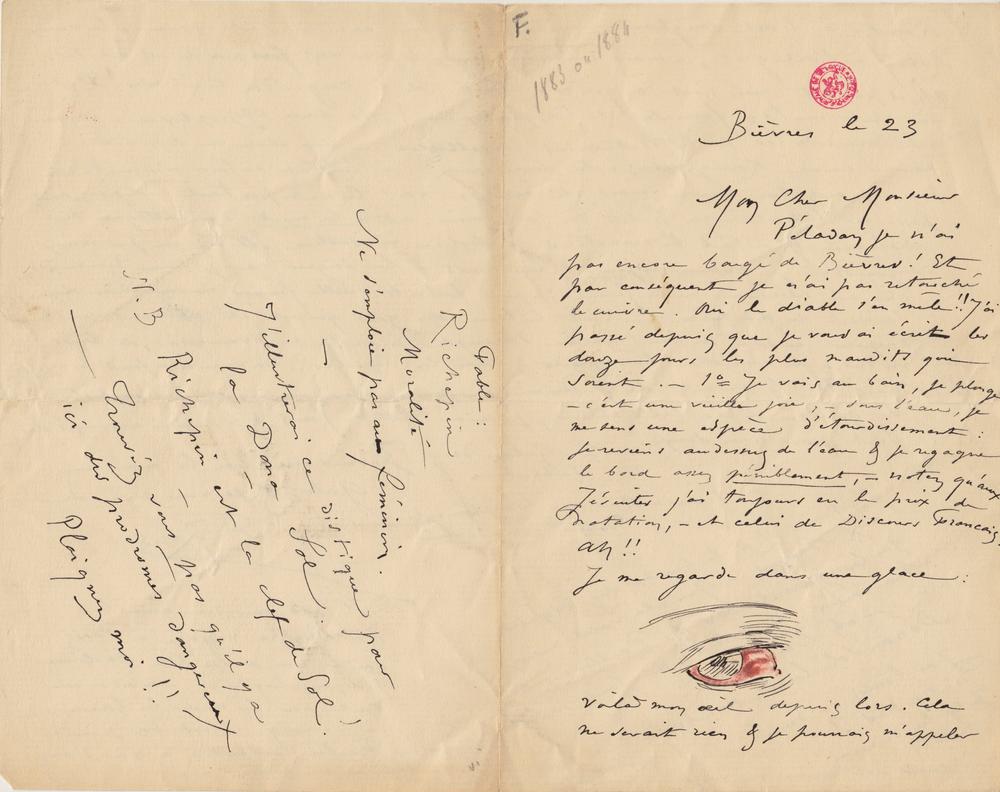 F.
1883 ou 1884
Bièvres le 23
Mon Cher Monsieur
Péladan je n'ai
pas encore bougé de Bièvres! Et
par conséquent je n'ai pas retouché
le cuivre. Oui le diable s'en mêle!! J'ai
passé depuis que je vous ai écrit les
douze jours les plus maudits qui
soient. — 1º Je vais au bain, je plonge
— c'est une vieille joie, — sous l'eau, je
me sens une espèce d'étourdissement:
je reviens au dessus de l'eau & je regagne
le bord assez péniblement, — notez qu'aux
Jésuites j'ai toujours eu le prix de
natation, — et celui de Discours Français,
Ah!!
Je me regarde dans une glace:
voilà mon œil depuis lors. Cela
ne serait rien & je pourrais m'appeler
Fable:
Richepin
Moralité
Ne s'emploie pas au féminin.
—
J'illustrerai ce distique pour
la Dona Sol.
Richepin est la clef de Sol!
N.B
—
Trouvez vous pas qu'il y a
ici des prodromes dangereux
Plaignez moi!!